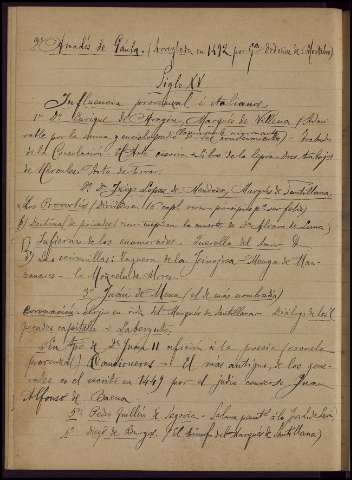 Amadís de Gaula. (Arreglado en 1492 por Gª Ordoñez de Montalvo)
Siglo XV
Influencia provenzal é italiana.
1º Dn Enrique de Aragón, Marqués de Villena
por la suma Tratado
de la Consolación - El Arte cisoria - Libro de la lepra - Los trabajos
de Hércules - Arte de trovar.
2º Dn Iñigo Lopez de Mendoza, Marqués de Santillana.
Los Proverbios (Divididos en
b) Doctrinal de privados en la muerte de Dn Alvaro de Luna)
Infierno de los enamorados - Querella del amor
Las serranillas: Vaquera de la Finojosa - Menga de Man-
zanares - la Mozuela de Bores.
3º Juan de Mena (el de más nombradía)
Coronación: elogio en vida del Marqués de Santillana - Diálogo de los 7
pecados capitales - Laberinto.
En tpo de Dn Juan II afición á la poesía (escuela
provenzal) Cancioneros: El más antiguo de los gene-
rales en el escrito en 1449 por el judío converso Juan
Alfonso de Baena
5º: Pedro Guillén de Segovia -
6º Diego de Burgos. (El triunfo del Marqués de Santillana)